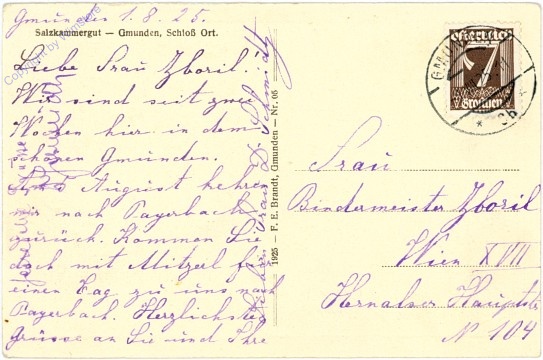 Gmunden 1.8.25.
Salzkammergut — Gmunden, Schloß Ort.
Liebe Frau Zboril!
Wir sind seit zwei
Wochen hier in dem
schönen Gmunden.
August kehren
wir nach Payerbach
zurück. Kommen Sie
doch mit Mitzerl für
einen Tag zu uns nach
Payerbach. Herzlichste
Grüsse an Sie und Ihre
Frau D. Schmidt
1925 — F. E. Brandt, Gmunden — Nr. 05
Österreich
7
Groschen
GMUNDEN
Frau
Bindermeister Zboril
Wien XVII
Hernalser Hauptstr
N 104
Copyright by